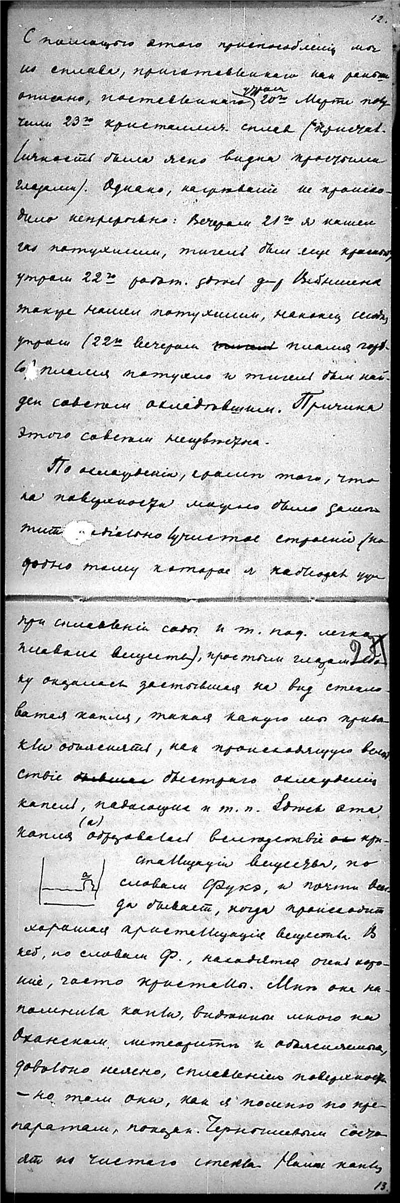 12.
С помощью этого приспособления мы
из сплава, приготовленнаго как раньше
описано, поставленнаго утром 20го Марта полу
чили 23го кристаллич. сплав (кристал-
личность была ясно видна простыми
глазами). Однако, нагревание не происхо-
дило непрерывно: Вечером 21го я нашел
газ потухшим, тигель был еще красным,
утром 22го работ. здесь д-р
также нашел потухшим, наконец сегодня
утром (22го вечером пламя горе
ло) пламя потухло и тигель был най-
ден совсем охладевшим. Причина
этого совсем неизвестна.
По охлаждении, кроме того, что
на поверхности можно было заме
тить лучистое строение (по
добно тому которое я наблюдал уже
при сплавлении соды и т. под. легко
плавких веществ), простым глазам
ку оказалась застывшая на вид стекло
ватая капля, такая какую мы привы
кли объяснять, как происходящую вслед
ствие быстраго охлаждения
капель, падающих и т. п. Здесь эта
капля (а) образовалась вследствие кри-
а
сталлизации вещества, по
словам Фукэ, и почти всег
да бывает, когда происходит
хорошая кристаллизация вещества. В
ней, по словам Ф., находятся очень хоро-
шие, часто кристаллы. Мне она на-
помнила капли, виденные мною на
Оханском метеорите и объясняемыя,
довольно неясно, сплавлением поверхности
– но там они, как я помню по пре-
паратам, показан. Чернышевым состо-
ят из чистаго стекла. Наша капля
13.